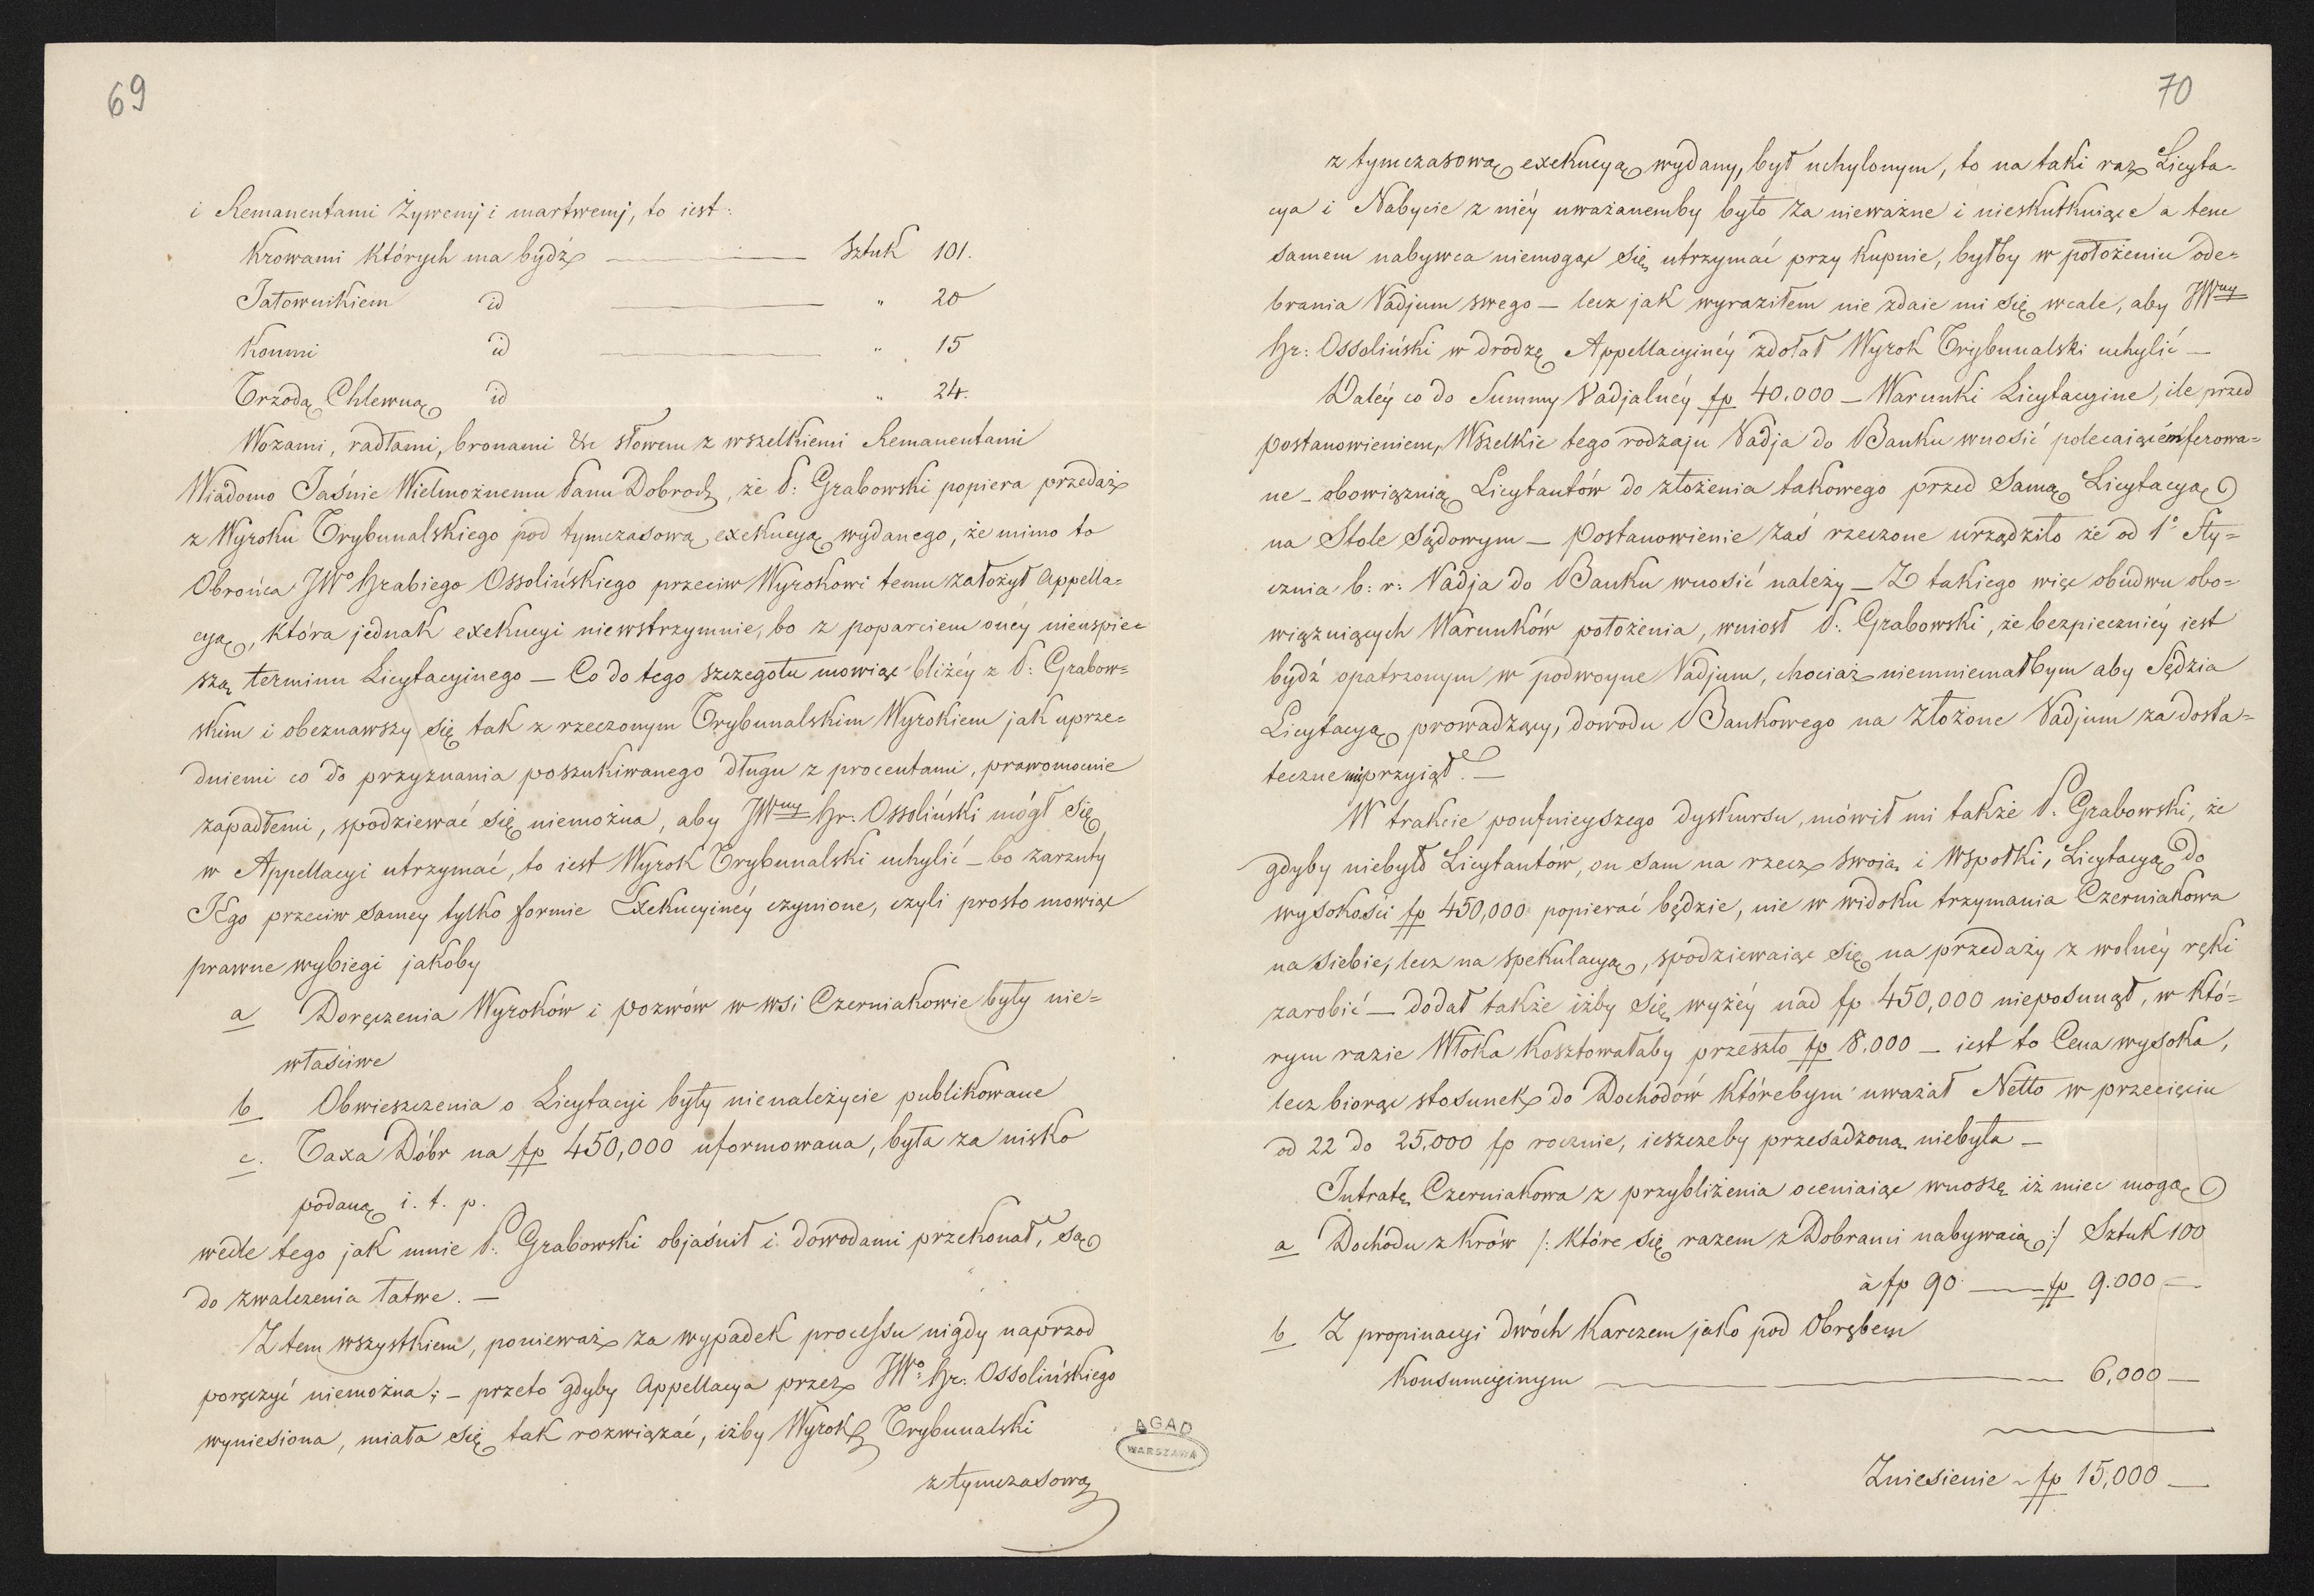 69
i Remanentami Żywemj i martwemj, to iest:
Krowami których ma bydź ——— Sztuk 101.
Jałownikiem id ——— " 20
Końmi id ——— " 15
Trzodą Chlewną id " 24.
Wozami, radłami, bronami &c słowem z wszelkiemi Remanentami
Wiadomo Jaśnie Wielmożnemu Panu Dobrodz, że P: Grabowski popiera przedaż
z Wyroku Trybunalskiego pod tymczasową exekucyą wydanego, że mimo to
Obrońca JWo Hrabiego Ossolińskiego przeciw Wyrokowi temu założył Appella=
cyą, która jednak exekucyi niewstrzymuie, bo z poparciem onéy nieuspie=
szą terminu Licytacyinego — Co do tego szczegołu mowiąc bliżéy z P: Grabow=
skim i obeznawszy się tak z rzeczonym Trybunalskim Wyrokiem jak uprze=
dniemi co do przyznania poszukiwanego długu z procentami, prawomocnie
zapadłemi, spodziewać się niemożna, aby JWny Hr: Ossoliński mógł się
w Appellacyi utrzymać, to iest Wyrok Trybunalski uchylić — bo zarzuty
JEgo przeciw samey tylko formie Exekucyinéy czynione, czyli prosto mowiąc
prawne wybiegi jakoby
a Doręczenia Wyroków i pozwów w wsi Czerniakowie były nie=
właściwe
b Obwieszczenia o Licytacyi były nienależycie publikowane
c. Taxa Dóbr na fp 450,000 uformowana, była za nisko
podaną i. t. p.
wedle tego jak mnie P. Grabowski objaśnił i dowodami przekonał, są
do zwalczenia łatwe. —
Z tem wszystkiem, ponieważ za wypadek processu nigdy naprzod
poręczyć niemożna; — przeto gdyby Appellacya przez JWo: Hr: Ossolińskiego
wyniesiona, miała się tak rozwiązać, iżby Wyrok Trybunalski
z tymczasową
AGAD
WARSZAWA
70
z tymczasową exekucyą wydany, był uchylonym, to na taki raz Licyta=
cya i Nabycie z niéy uważanemby było za nieważne i nieskutkuiące a tem
samem nabywca niemogąc się utrzymać przy kupnie, byłby w położeniu ode=
brania Vadjum swego — lecz jak wyraziłem nie zdaie mi się wcale, aby JWny
Hr: Ossoliński w drodzę Appellacyinéy zdołał Wyrok Trybunalski uchylić —
Daléy co do Summy Vadjalnéy fp 40.000 — Warunki Licytacyine, ile przed
postanowieniem, Wszelkie tego rodzaju Vadja do Banku wnosić polecaiącém ferowa=
ne — obowiązuią Licytantów do złożenia takowego przed samą Licytacyą
na Stole Sądowym — Postanowienie zaś rzeczone urządziło że od 1o Sty=
cznia b: r: Vadja do Banku wnosić należy — Z takiego więc obudwu obo=
wiązuiących Warunków położenia, wniosł P: Grabowski, że bezpieczniéy iest
bydź opatrzonym w podwoyne Vadjum, chociaż niemniemałbym aby Sędzia
Licytacyą prowadzący, dowodu Bankowego na złożone Vadjum za dosta=
teczne nieprzyiął. —
W trakcie poufnieyszego dyskursu, mówił mi także P. Grabowski, że
gdyby niebyło Licytantów, on sam na rzecz swoią i Wspołki, Licytacyą do
wysokości fp 450,000 popierać będzie, nie w widoku trzymania Czerniakowa
na siebie, lecz na spekulacyą, spodziewaiąc się na przedaży z wolnéy ręki
zarobić — dodał także iżby się wyżéy nad fp 450,000 nieposunął, w któ=
rym razie Włoka kosztowałaby przeszło fp 8,000 — iest to Cena wysoka,
lecz biorąc stosunek do Dochodów którebym uważał Netto w przecięciu
od 22 do 25.000 fp rocznie, ieszczeby przesadzoną niebyła —
Intratę Czerniakowa z przybliżenia oceniaiąc wnoszę iż miec mogą
a Dochodu z Krów /: które się razem z Dobrami nabywaią :/ Sztuk 100
à fp 90 —— fp 9.000 —
b Z propinacyi dwóch Karczem jako pod Obrębem
Konsumcyinym ——— 6,000 —
Zniesienie ~ fp 15,000 —